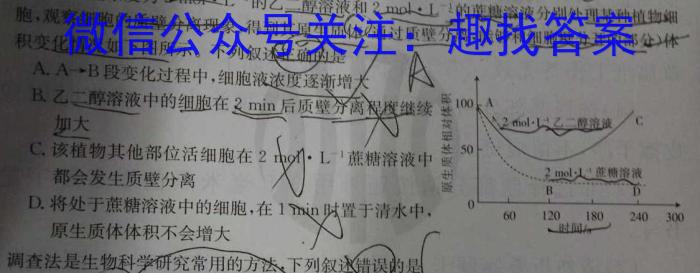 的乙二醇溶液和2 mol·L⁻¹的蔗糖溶液分别处理某种植物细
胞,观察
微信公众号关注：趣找答案
积变化
下列叙述正确的是
A. A→B段变化过程中,细胞液浓度逐渐增大
B. 乙二醇溶液中的细胞在2 min后质壁分离程度继续
加大
C. 该植物其他部位活细胞在2 mol·L⁻¹蔗糖溶液中
都会发生质壁分离
D. 将处于蔗糖溶液中的细胞,在1 min时置于清水中,
原生质体体积不会增大
原生质体相对体积
100
50
0
A
2 mol·L⁻¹乙二醇溶液
C
2 mol·L⁻¹蔗糖溶液
B
D
60 120 180 240 300
时间/s
调查法是生物科学研究常用的方法,下列叙述错误的是